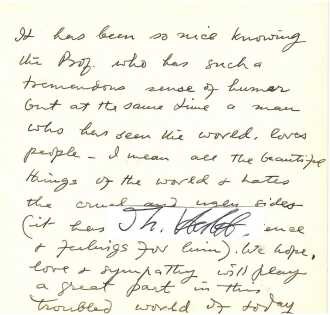 It has been so nice knowing
the Prof. who has such a
tremendous sense of humor
but at the same time a man
who has seen the world, loves
people – I mean all the beautiful
things of the world & hates
the cruel and ugly sides
(it has ence
& feelings for him). We hope,
love & sympathy will play
a great part in this
troubled world of today